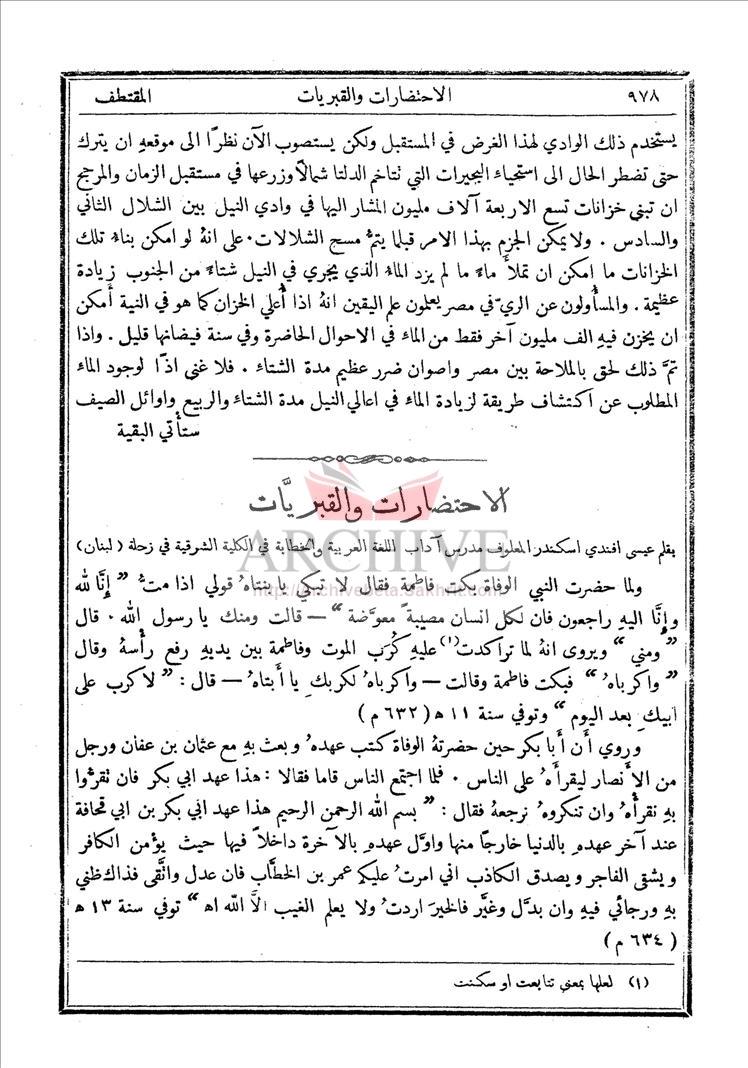 ٩٧٨ الاحتضارات والقبريات المقتطف
يستخدم ذلك الوادي لهذا الغرض في المستقبل ولكن يستصوب الآن نظرًا الى موقعهِ ان يترك
حتى تضطر الحال الى استحياء البحيرات التي نتاخم الدلتا شمالاً وزرعها في مستقبل الزمان والمرجح
ان تبنى خزانات تسع الاربعة آلاف مليون المشار اليها في وادي النيل بين الشلال الثاني
والسادس . ولا يمكن الجزم بهذا الامر قبلما يتمُّ مسح الشلالات . على انهُ لو امكن بناءُ تلك
الخزانات ما امكن ان تملأ ماءً ما لم يزد الماءُ الذي يجري في النيل شتاءً من الجنوب زيادة
عظيمة . والمسأولون عن الريّ في مصر يعلمون علم اليقين انهُ اذا أُعلي الخزان كما هو في النية أمكن
ان يخزن فيهِ الف مليون آخر فقط من الماءِ في الاحوال الحاضرة وفي سنة فيضانها قليل . واذا
تمَّ ذلك لحق بالملاحة بين مصر واصوان ضرر عظيم مدة الشتاء . فلا غنى اذًا لوجود الماء
المطلوب عن اكتشاف طريقة لزيادة الماءِ في اعالي النيل مدة الشتاء والربيع واوائل الصيف
ستأتي البقية
الاحتضارات والقبريَّات
ARCHIVE
بقلم عيسى افندي اسكندر المعلوف مدرس آداب اللغة العربية والخطابة في الكلية الشرقية في زحلة ( لبنان )
ولما حضرت النبي الوفاة بكت فاطمة فقال لا تبكي يا بنتاهُ قولي اذا متُّ " إِنَّا لله
وإِنَّا اليهِ راجعون فان لكل انسان مصيبةً معوَّضة " — قالت ومنك يا رسول الله . قال
" ومني " ويروى انهُ لما تراكدت(١) عليهِ كُرَب الموت وفاطمة بين يديهِ رفع رأْسهُ وقال
" واكرباهُ " فبكت فاطمة وقالت — واكرباهُ لكربك يا أبتاهُ — قال : " لا كرب على
ابيكِ بعد اليوم " وتوفي سنة ١١ ه ( ٦٣٢ م )
وروي أن أبا بكر حين حضرتهُ الوفاة كتب عهدهُ وبعث بهِ مع عثمان بن عفان ورجل
من الأنصار ليقرأَهُ على الناس . فلما اجتمع الناس قاما فقالا : هذا عهد ابي بكر فان نقرُّوا
بهِ نقرأْهُ وان تنكروهُ نرجعهُ فقال : " بسم الله الرحمن الرحيم هذا عهد ابي بكر بن ابي قحافة
عند آخر عهدهِ بالدنيا خارجًا منها واوَّل عهدهِ بالآخرة داخلاً فيها حيث يؤْمن الكافر
ويشقى الفاجر ويصدق الكاذب اني امرتُ عليكم عمر بن الخطَّاب فان عدل واتَّقى فذاك ظني
بهِ ورجائي فيهِ وان بدَّل وغيَّر فالخيرَ اردتُ ولا يعلم الغيب الاَّ الله اه " توفي سنة ١٣ ه
( ٦٣٤ م )
(١) لعلها بمعنى نتابعت او سكنت